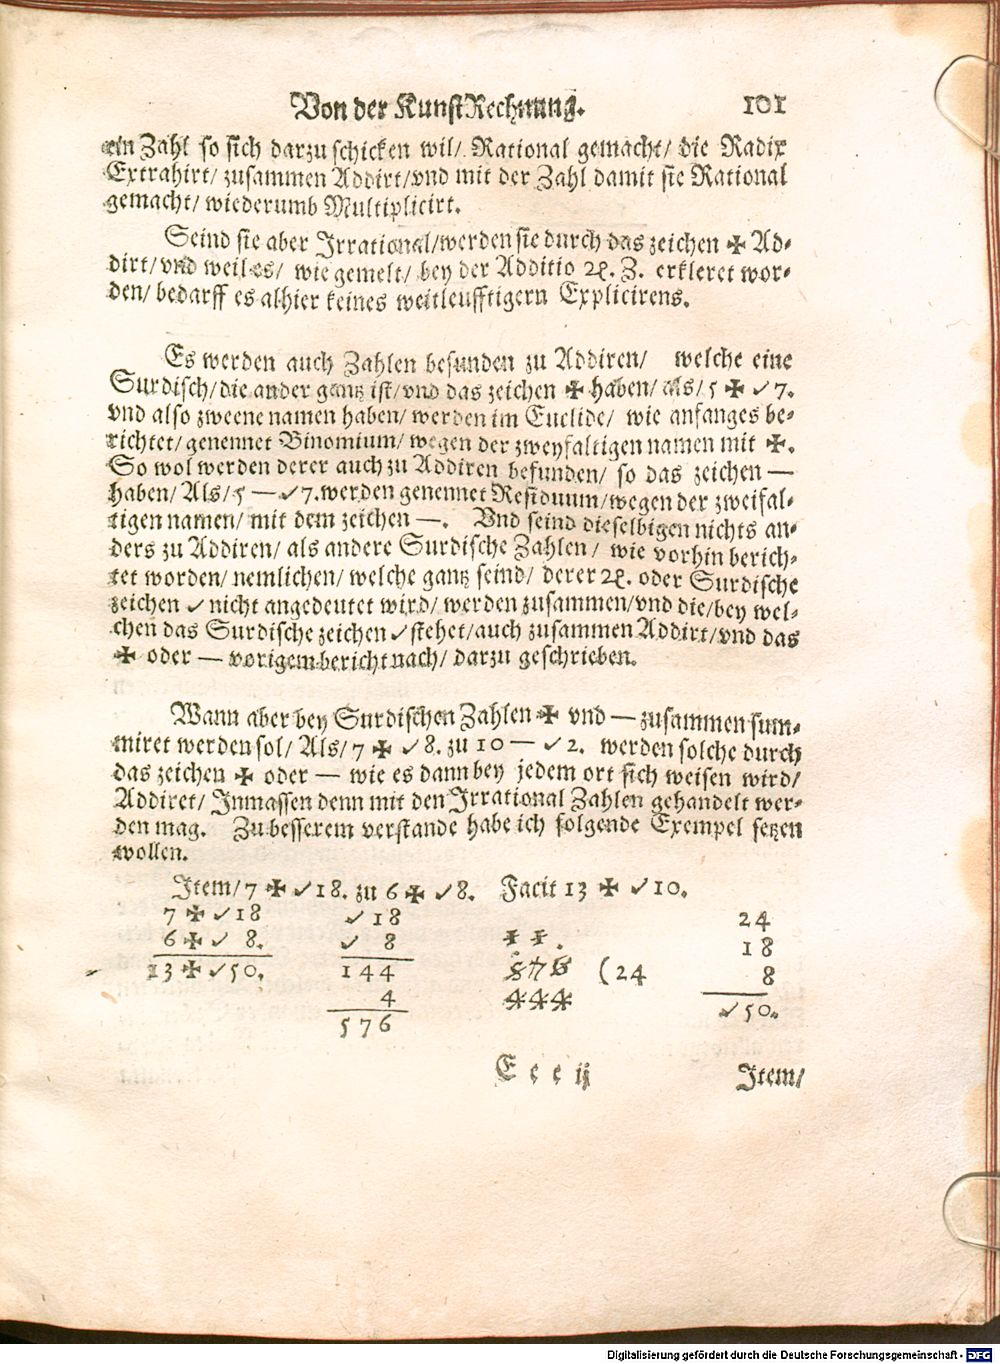 Von der KunstRechnung. 101
ein Zahl so sich darzu schicken wil/ Rational gemacht/ die Radix
Extrahirt/ zusammen Addirt/ vnd mit der Zahl damit sie Rational
gemacht/ wiederumb Multiplicirt.
Seind sie aber Irrational/ werden sie durch das zeichen ✠ Ad-
dirt/ vnd weil es/ wie gemelt/ bey der Additio ꝛc. Z. erkleret wor-
den/ bedarff es alhier keines weitleufftigern Explicirens.
Es werden auch Zahlen befunden zu Addiren/ welche eine
Surdisch/ die ander gantz ist/ vnd das zeichen ✠ haben/ als/ 5 ✠ √ 7.
vnd also zweene namen haben/ werden im Euclide/ wie anfanges be-
richtet/ genennet Binomium/ wegen der zweyfaltigen namen mit ✠.
So wol werden derer auch zu Addiren befunden/ so das zeichen —
haben/ Als/ 5 — √ 7. werden genennet Residuum/ wegen der zweifal-
tigen namen/ mit dem zeichen —. Vnd seind dieselbigen nichts an-
ders zu Addiren/ als andere Surdische Zahlen/ wie vorhin berich-
tet worden/ nemlichen/ welche gantz seind/ derer ꝛc. oder Surdische
zeichen √ nicht angedeutet wird/ werden zusammen/ vnd die/ bey wel-
chen das Surdische zeichen √ stehet/ auch zusammen Addirt/ vnd das
✠ oder — vorigem bericht nach/ darzu geschrieben.
Wann aber bey Surdischen Zahlen ✠ vnd — zusammen sum-
miret werden sol/ Als/ 7 ✠ √ 8. zu 10 — √ 2. werden solche durch
das zeichen ✠ oder — wie es dann bey jedem ort sich weisen wird/
Addiret/ Inmassen denn mit den Irrational Zahlen gehandelt wer-
den mag. Zu besserem verstande habe ich folgende Exempel setzen
wollen.
Item/ 7 ✠ √ 18. zu 6 ✠ √ 8. Facit 13 ✠ √ 10.
7 ✠ √ 18 √ 18 24
6 ✠ √ 8. √ 8 1 1. 18
13 ✠ √ 50. 144 576 (24 8
4 444 √ 50.
576
E e e ij Item/
Digitalisierung gefördert durch die Deutsche Forschungsgemeinschaft - DFG